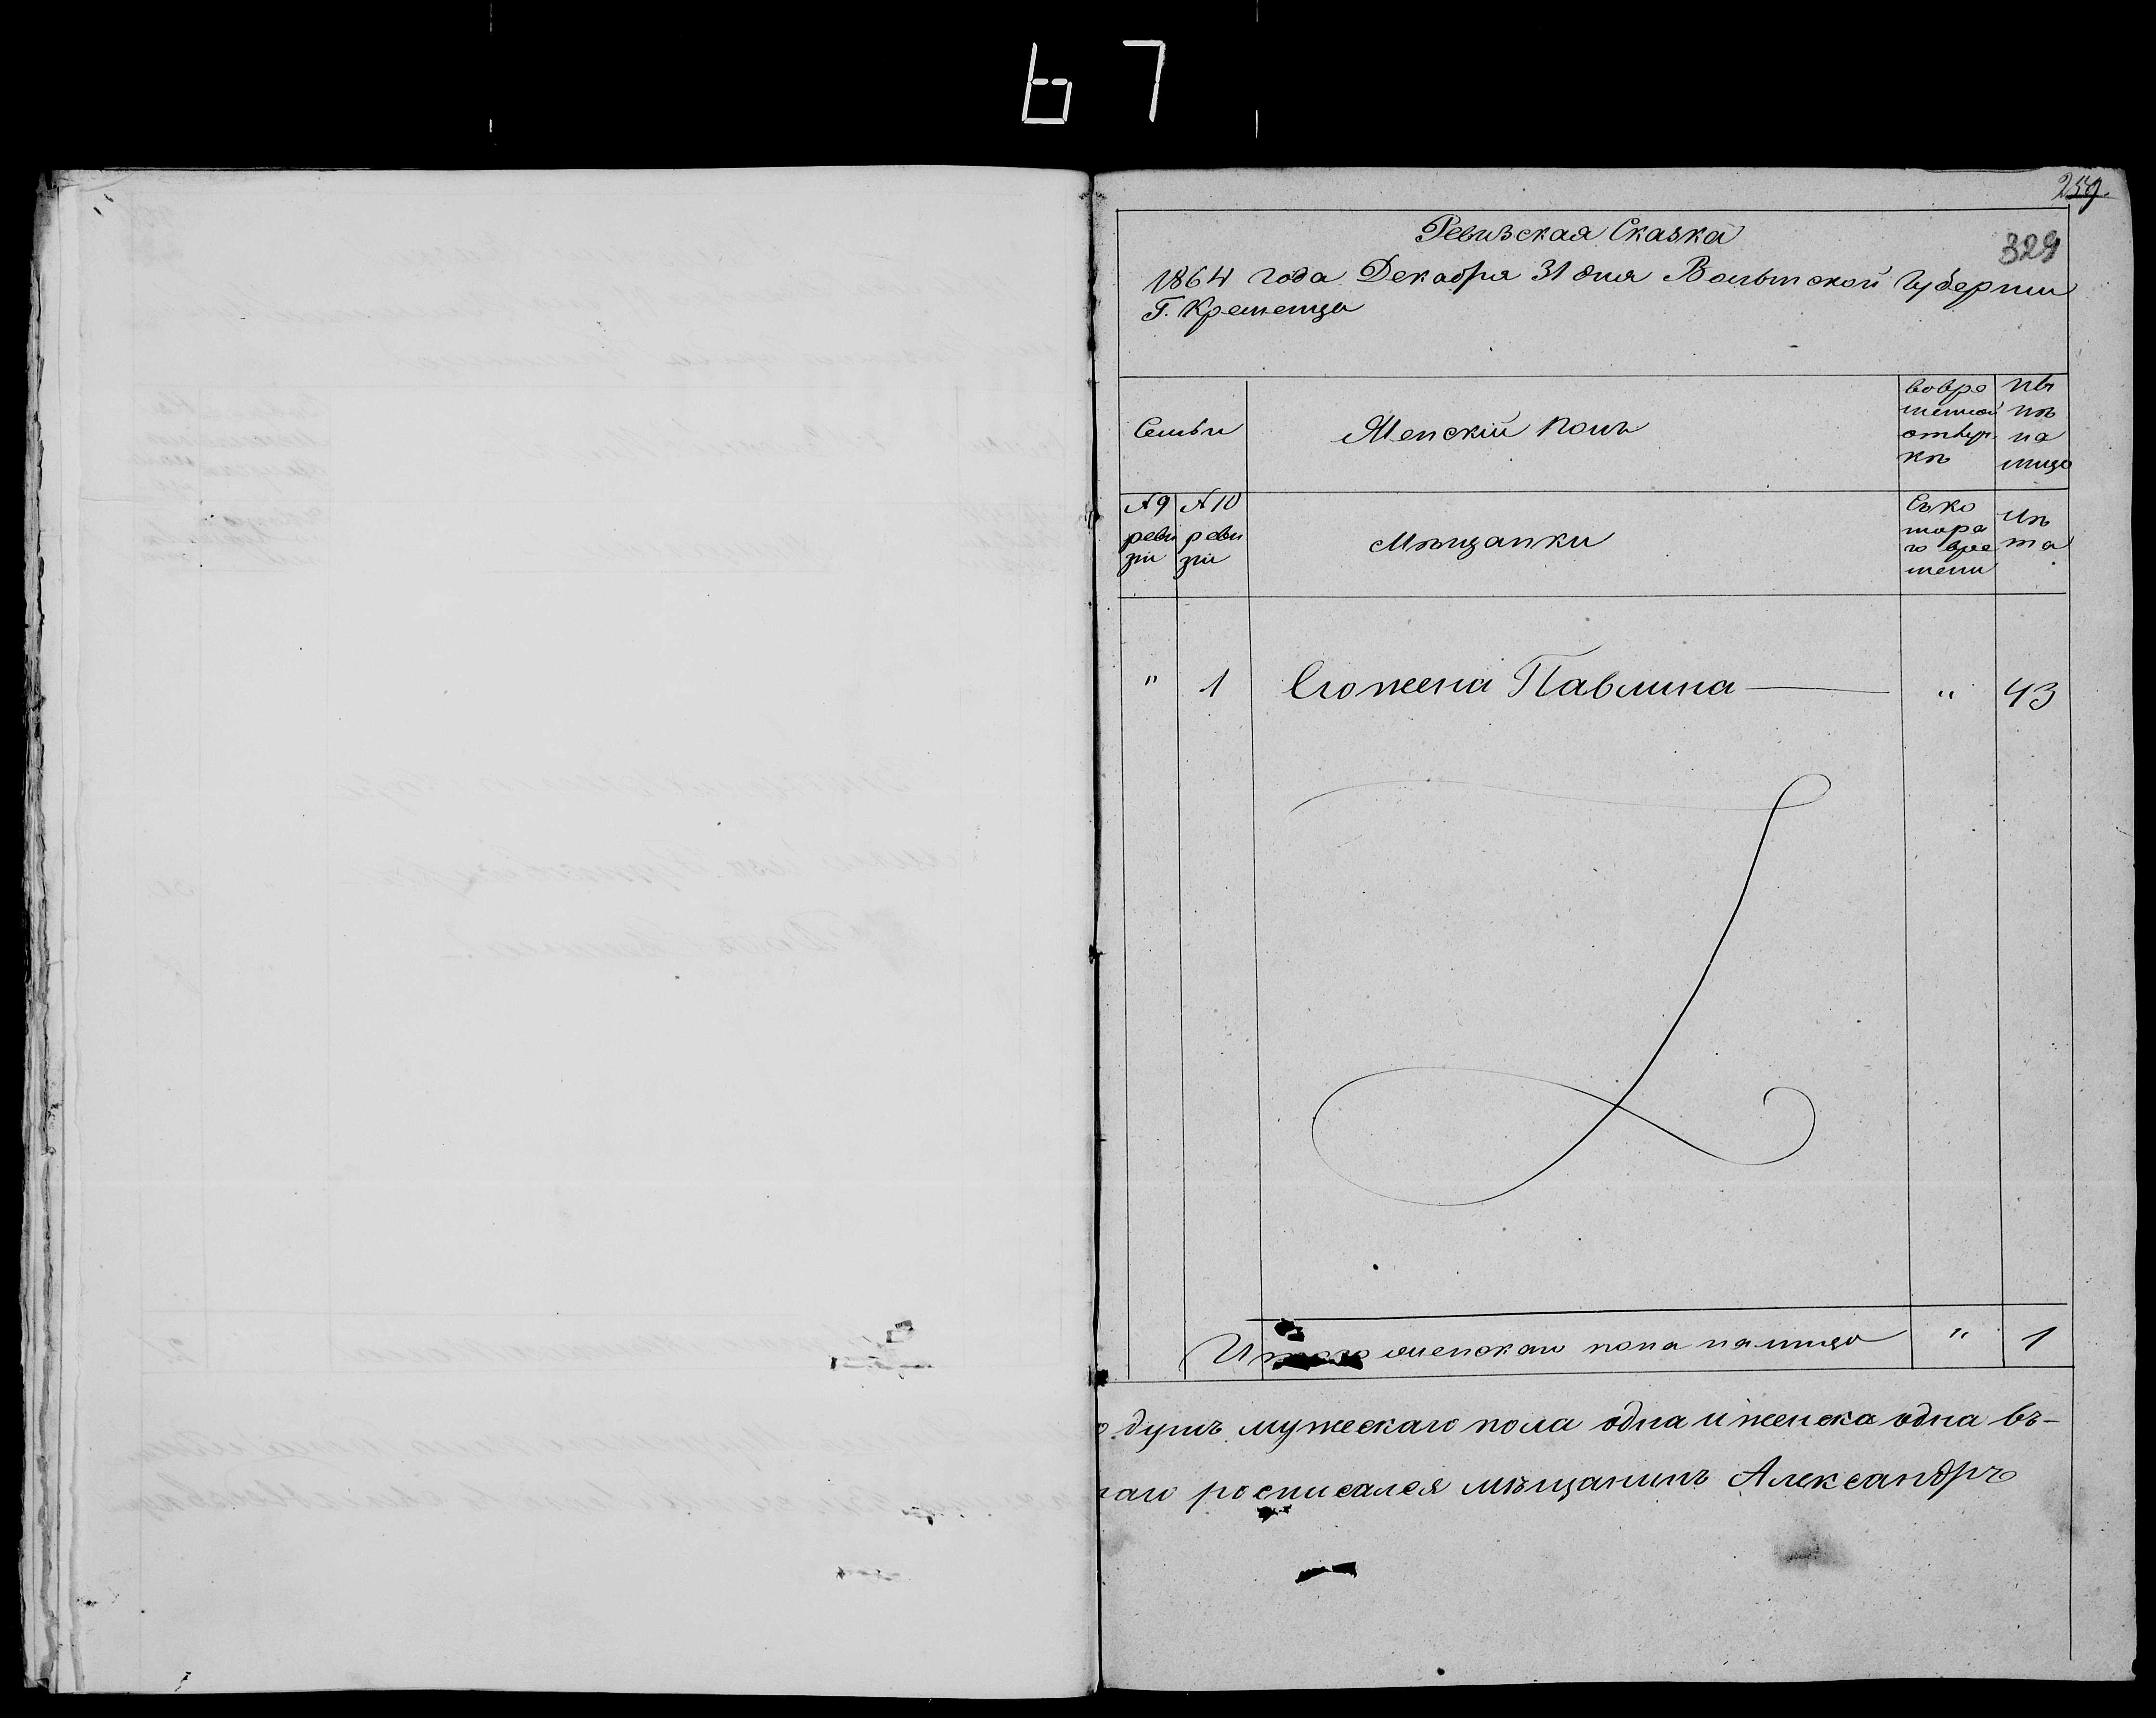 67
259.
329
Ревизская Сказка
1864 года Декабря 31 дня Волынской Губернии
Г. Кременца
Семьи
Женскій полъ
вовре
менной
отлуч
кѣ
Ны
нѣ
на
лицо
№ 9
реви
зіи
№ 10
реви
зіи
Мѣщанки
Съко
тора
го вре
мени
Лѣ
та
" 1 Его жена Павлина — " 43
Итого женскаго пола налицо " 1
душъ мужескаго пола одна и женска одна въ-
росписался мѣщанинъ Александръ